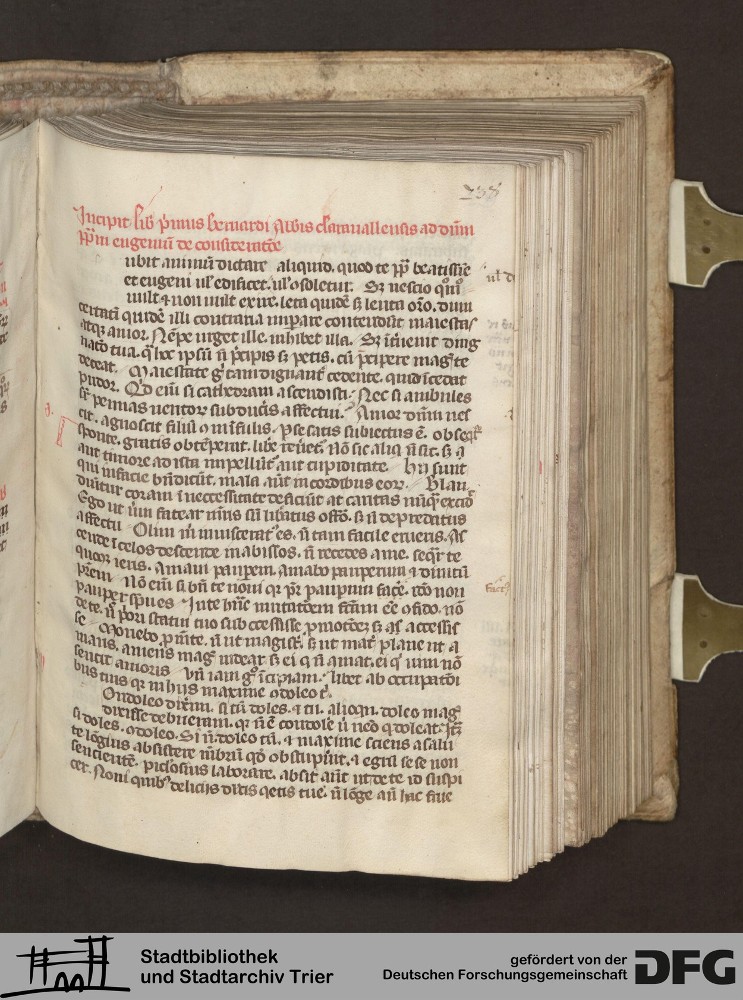 Incipit lib' p'mus bernardi Abb'is clareuallensis ad d'nm
p'pm eugeniu' de consideratio'e
ubit animu' dictare aliquid. quod te p'p beatissi'e
et eugeni ul' edificet. ul' 9soletur. S; nescio quo'
uult & non uult exire. leta quide' s; lenta or'o. dum
certati' quide' illi contraria imperare contendu't maiestas
atq; amor. Ne'pe urget ille. inhibet illa. S; int'uenit dig
nac'o tua. q' hoc ip'su' n' p'cipis s; petis. cu' p'cipere mag' te
deceat. Maiestate g' tam digna't' cedente. quid'i cedat
pudor. Q'd eni' si cathedram ascendisti. Nec si ambules
sup' pennas uentor' subduceris affectui. Amor d'nm nes
cit. agnoscit filiu' & in i'fulis. p' se satis subiectus e'. obseq't'
sponte. gratis obte'perat. lib'e reueret'. No' sic aliq' n' sic. s; a
aut timore ad ista impellu't' aut cupiditate. Hij sunt
qui in facie b'ndicu't. mala au't in cordibus eor'. Blan
diu'tur coram i' necessitate deficiu't at caritas nu'q' excid'
Ego ut uer' fatear m'ris su' lib'atus offo'. s; n' depredatus
affectu Olim m' inuiscerat' es. n' tam facile erueris. As
cende i' celos descende in abissos. n' recedes a me. seq'r te
quocu'q; ieris. Amaui paup'em. amabo pauperum & diuitu'
p'rem. No' eni' si b'n te noui q'r p'r paup'um fact'. id'o non
pauper sp'u es Inte h'nc mutac'oem fact'm e'e 9fido. no'
de te. n' p'ori statui tuo successisse p'moc'oe; s; acc'essisse
Monebo p'inde. n' ut magist'. s; ut mat' plane ut a
mans. amens mag' uidear. s; ei q' n' amat. ei q' uim no'
sentit amoris Un' iam g' i'cipiam. libet ab occupac'oi
bus tuis q'r in hijs maxime 9doleo t'.
Condoleo dixeri'. si t'n doles & tu. alioqn' doleo mag'
dixisse debueram. q'r n' e' condole' u' nemo q' doleat. Itaq;
si doles. 9doleo. Si n'. doleo t'n. & maxime sciens a salu
te lo'gius absistere me'brum q'd obstupuit. & egru' se se non
sentiente'. p'iculosius laborare. absit au't ut de te id suspi
cer. Noui quib' deliciis dulcis q'etis tue. n' lo'ge an' hac frue
Stadtbibliothek
und Stadtarchiv Trier
gefördert von der
Deutschen Forschungsgemeinschaft
DFG